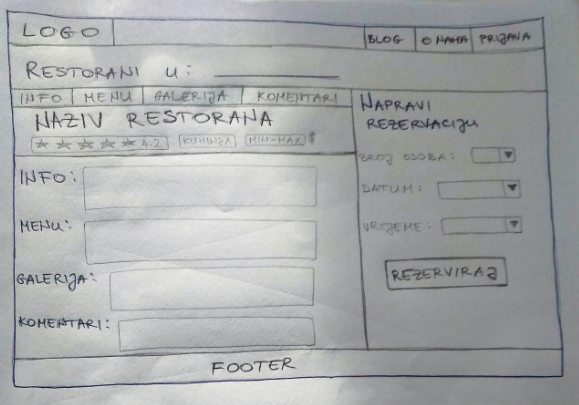 LOGO
BLOG O NAMA PRIJAVA
RESTORANI U:
INFO MENU GALERIJA KOMENTARI
NAZIV RESTORANA
4.2 KUHINJA MIN-MAX $
INFO:
MENU:
GALERIJA:
KOMENTARI:
NAPRAVI
REZERVACIJU
BROJ OSOBA:
DATUM:
VRIJEME:
REZERVIRAJ
FOOTER